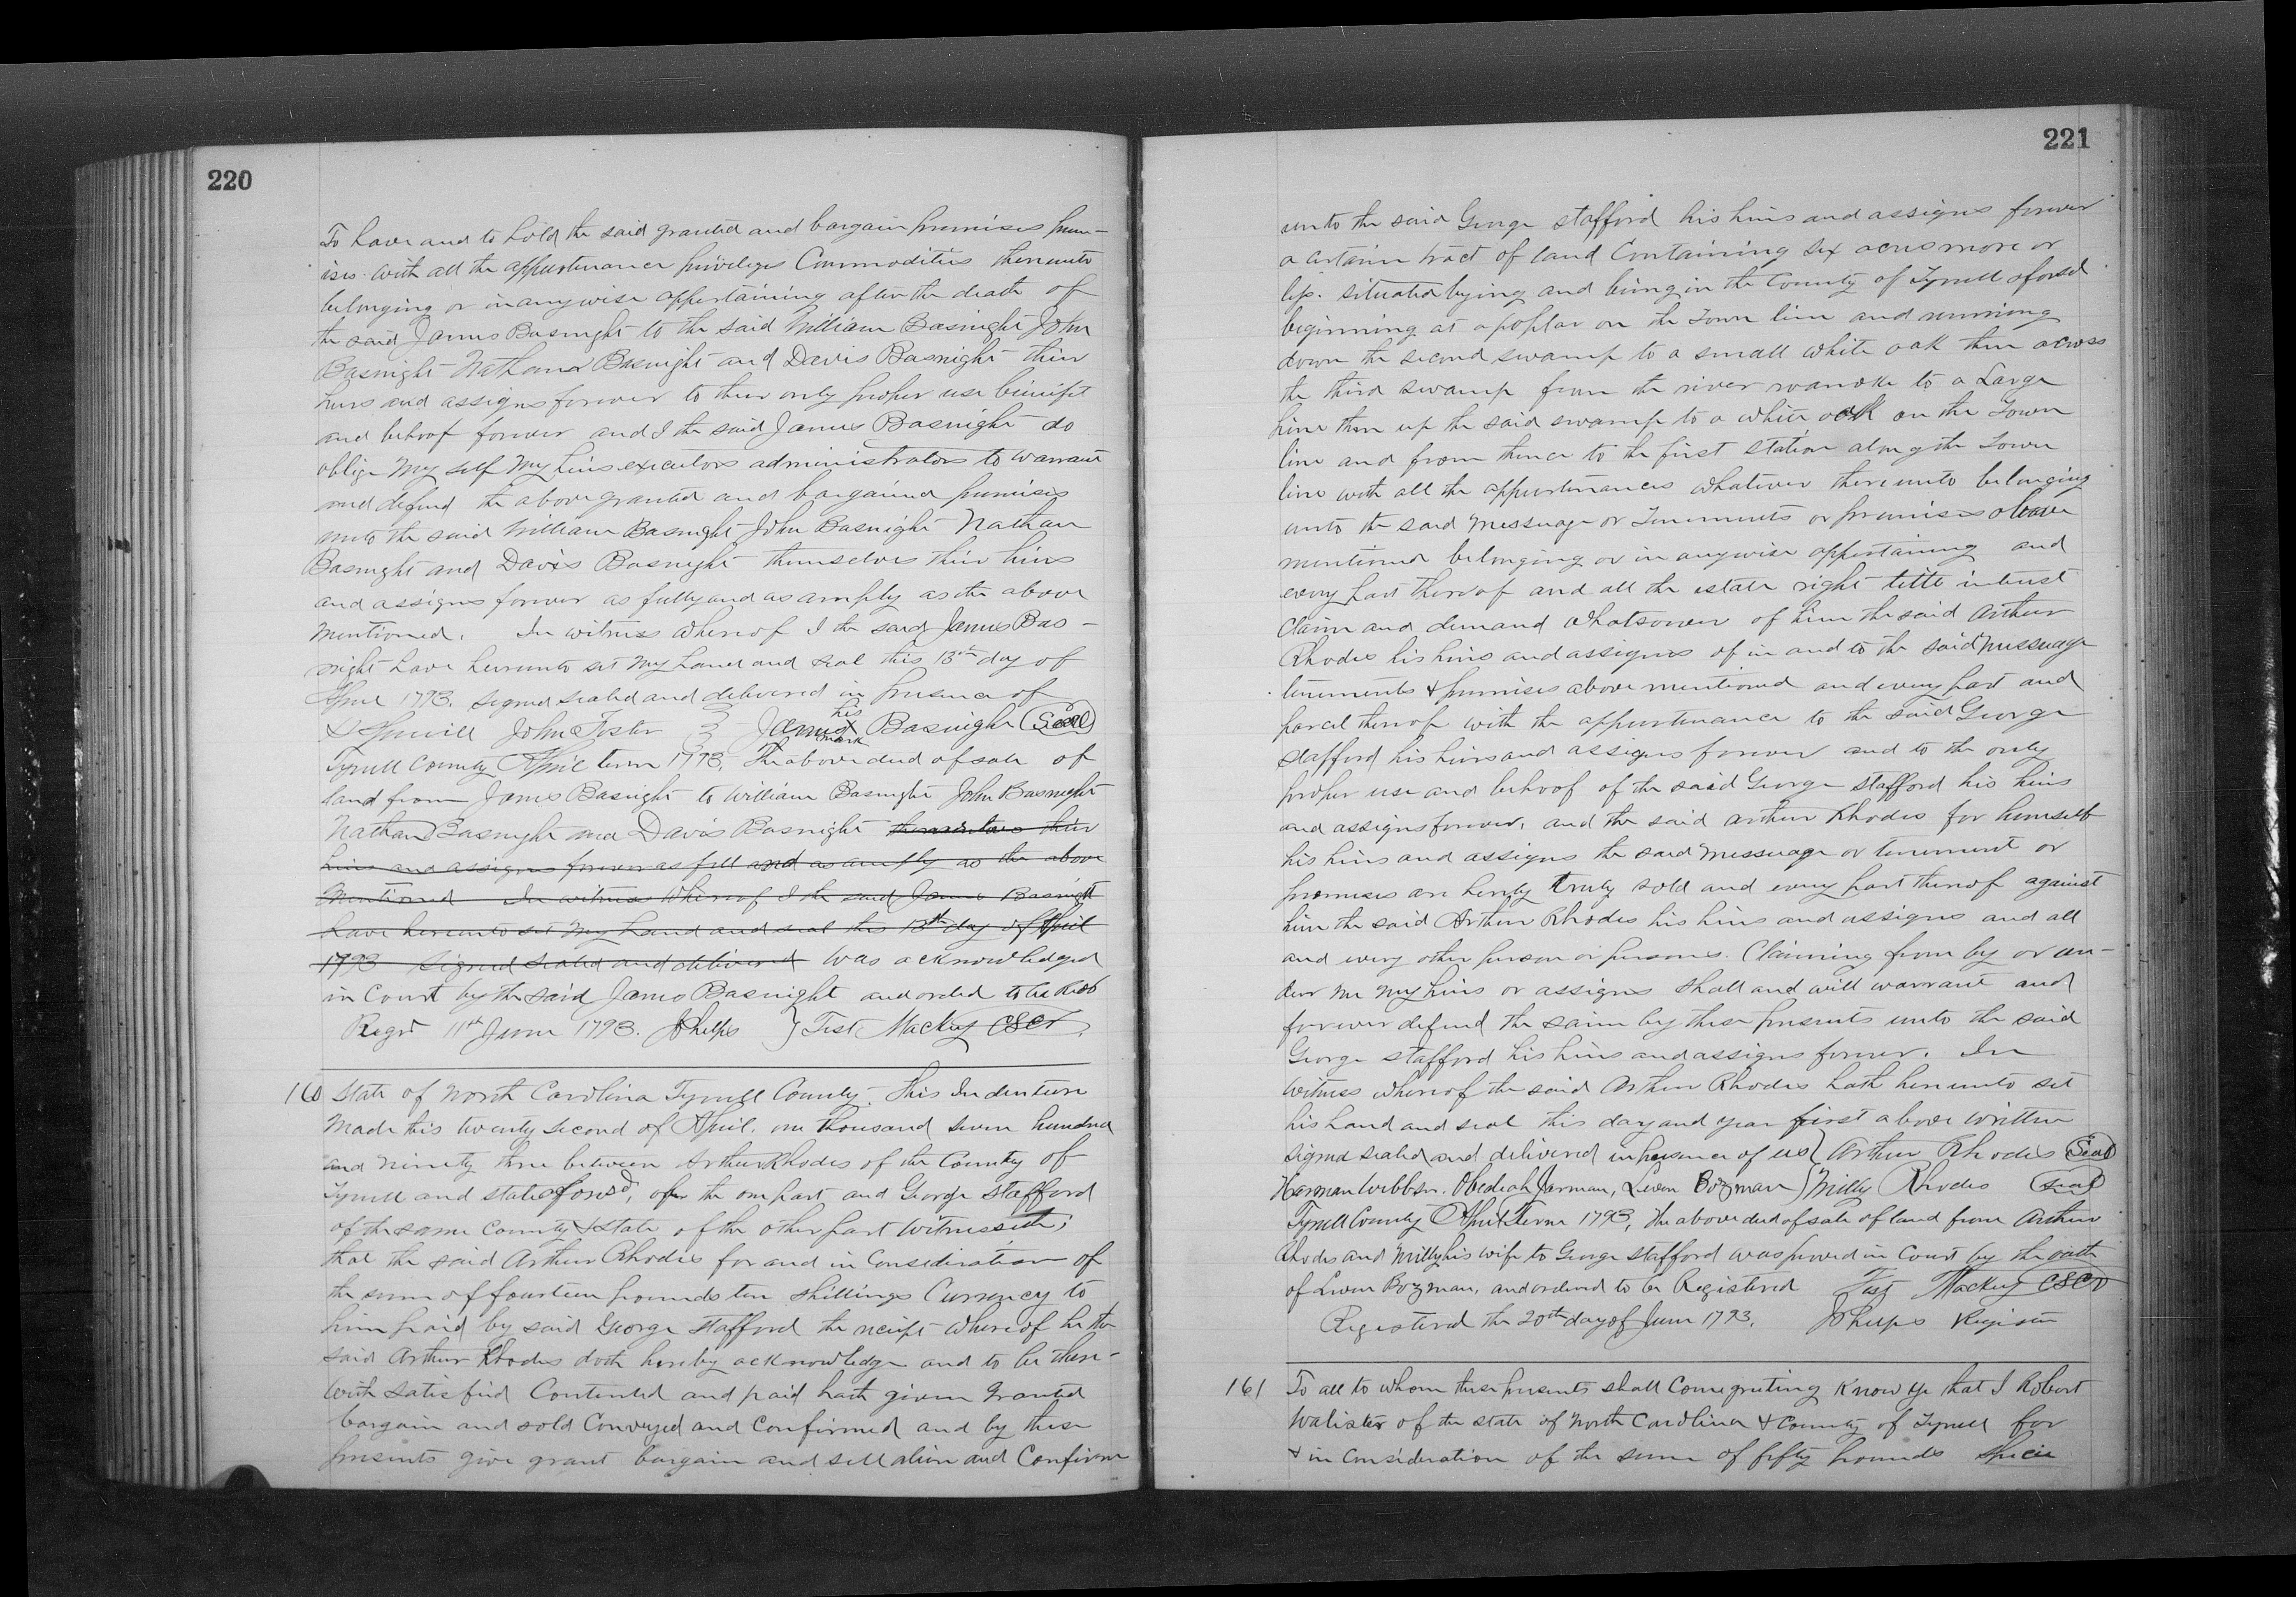 220
To have and to hold the said granted and bargain premises prem-
ises with all the appurtenance privileges Commodities thereunto
belonging or in anywise appertaining after the death of
the said James Basnight to the said William Basnight John
Basnight Nathan Basnight and Davis Basnight their
heirs and assigns forever to their only proper use benifit
and behoof forever and I the said James Basnight do
oblige My self My heirs executors administrators to warrant
and defend the above granted and bargained premises
unto the said William Basnight John Basnight Nathan
Basnight and Davis Basnight themselves their heirs
and assigns forever as fully and as amply as the above
mentioned. In witness whereof I the said James Bas-
night have hereunto set my hand and seal this 13th day of
April 1793. Signed sealed and delivered in presence of
S Spruill John Foster James his mark Basnight Seal
Tyrrell County April term 1793. The above deed of sale of
land from James Basnight to William Basnight John Basnight
Nathan Basnight and Davis Basnight themselves their
heirs and assigns forever as full and as amply as the above
Mentioned In witness Whereof I the said James Basnight
have hereunto set my hand and seal this 13th day of April
1793 Signed sealed and delivered was acknowledged
in Court by the said James Basnight and orded to be
Regd 11th June 1793. JPhelps } Test Mackey CSCT
160 State of North Carolina Tyrrell County. This Indenture
Made this twenty second of April. one thousand seven hundred
and ninety three between Arthur Rhodes of the County of
Tyrrell and state aforesd, of the one part and George Stafford
of the same County & state of the other part Witnesseth,
that the said Arthur Rhodes for and in Consideration of
the sum of fourteen pounds ten shillings Currency to
him paid by said George Stafford the receipt whereof he the
said Arthur Rhodes doth hereby acknowledge and to be there-
with satisfied Contented and paid hath given Granted
bargain and sold Conveyed and Confirmed and by these
presents give grant bargain and sell alien and Confirm
221
unto the said George Stafford his heirs and assigns forever
a certain tract of land Containing six acres more or
less. situated lying and being in the County of Tyrrell aforsd
beginning at a poplar on the Town line and running
down the second swamp to a small white oak then across
the third swamp from the river roanoke to a Large
pine then up the said swamp to a white oak on the Town
line and from thence to the first station along the Town
line with all the appurtenances whatever thereunto belonging
unto the said Messuage or Tenements or premises above
mentioned belonging or in anywise appertaining and
every part thereof and all the estate right title interest
Claim and demand whatsoever of him the said Arthur
Rhodes his heirs and assigns of in and to the said messuage
tenements & premises above mentioned and every part and
parcel thereof with the appurtenance to the said George
Stafford his heirs and assigns forever and to the only
proper use and behoof of the said George Stafford his heirs
and assigns forever, and the said Arthur Rhodes for himself
his heirs and assigns the said Messuage or tenement or
premises are hereby truly sold and every part thereof against
him the said Arthur Rhodes his heirs and assigns and all
and every other person or persons. Claiming from by or un-
der me my heirs or assigns shall and will warrant and
forever defend the same by these presents unto the said
George Stafford his heirs and assigns forever. In
Witness whereof the said Arthur Rhodes hath hereunto set
his hand and seal this day and year first above written
Signed sealed and delivered in presence of us } Arthur Rhodes Seal
Harman Webb sr. Obediah Jarman, Leven Bozman } Milly Rhodes Seal
Tyrrell County April Term 1793, the above deed of sale of land from Arthur
Rhodes and Milly his wife to George Stafford was proved in Court by the oath
of Leven Bozman, and ordered to be Registered Test Mackey CSCT
Registered the 20th day of June 1793. JPhelps Register
161 To all to whom these presents shall Come greeting Know ye that I Robert
Walister of the state of North Carolina & County of Tyrrell for
& in Consideration of the sum of fifty pounds specie